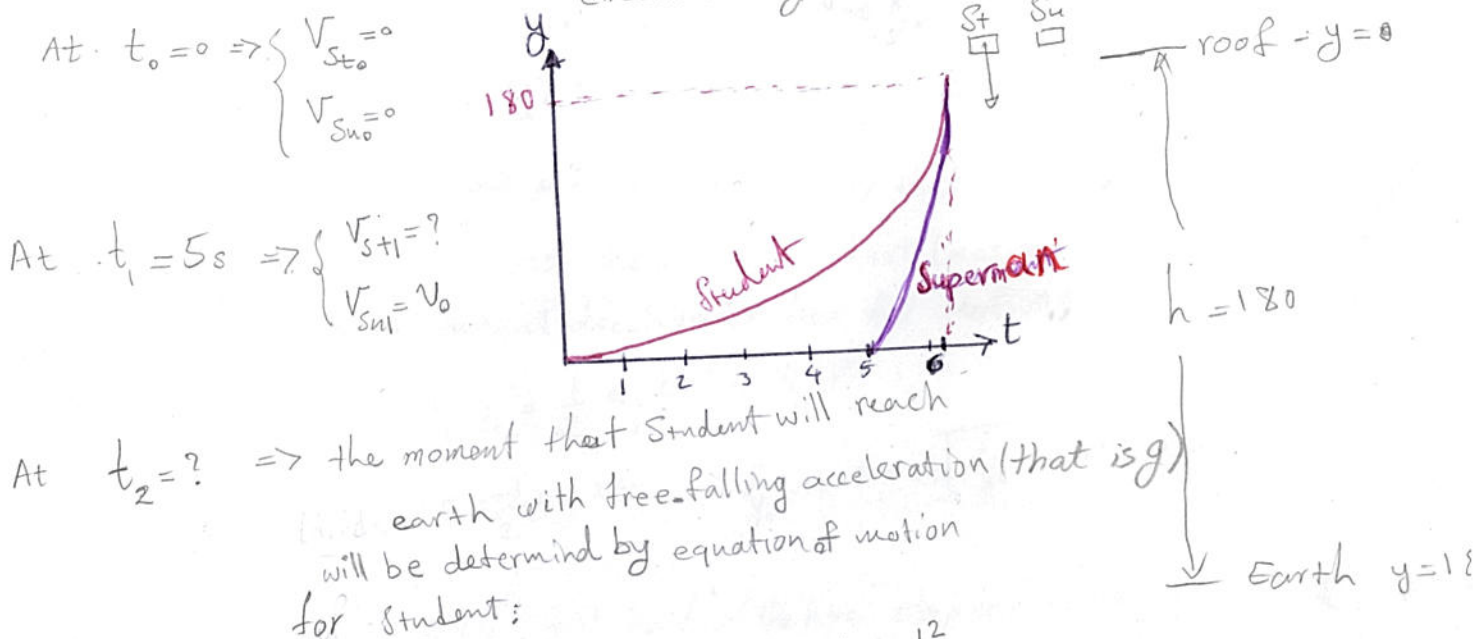 At t₀=0 => { V_St₀=0
V_Su₀=0
y
180
Student
Superman
1 2 3 4 5 6
t
St Su
roof - y=0
h = 180
Earth y=18
At t₁=5s => { V_St1=?
V_Su1=V₀
At t₂=? => the moment that Student will reach
earth with free-falling acceleration (that is g)
will be determind by equation of motion
for Student:
12